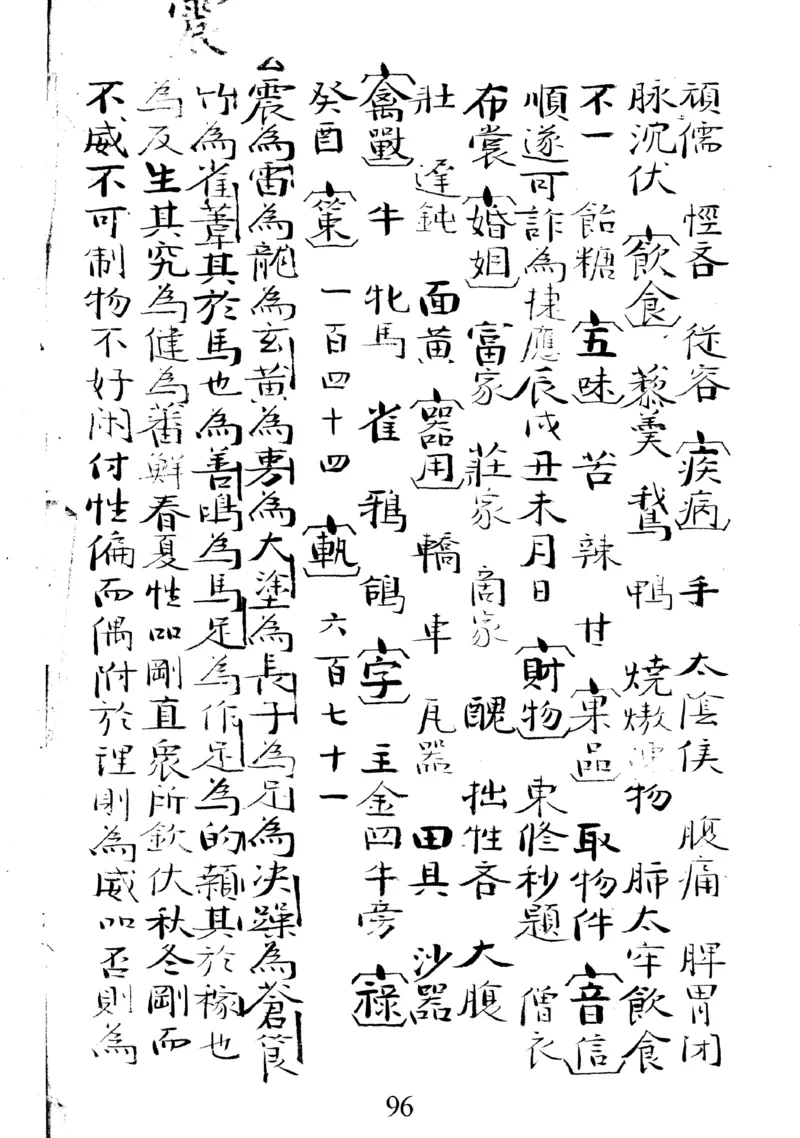 頑儒　慳吝　從容　疾病　手　太陰侯　腹痛　脾胃闭
脉沉伏　飲食　藜羹　鵞　鴨　燒燉物　肺太牢飲食
不一　飴糖　五味　苦　辣　甘　果品　取物件　音信
順遂可詐為捷應辰戌丑未月日　財物　束修秒題　僧衣
布裳　婚姻　富家　莊家　商家　醜　拙性吝　大腹
壯　逢鈍　面黃　器用　轎　車　瓦器　田具　沙器
禽獸　牛　牝馬　雀　鴉　鴿　字　主金四牛旁　祿
癸酉　策　一百四十四　軌　六百七十一
震為雷為龍為玄黃為旉為大塗為長子為足為决躁為蒼筤
竹為雀葦其於馬也為善鳴為馬足為作足為的顙其於稼也
為反生其究為健為蕃鮮春夏性吅剛直衆所欽伏秋冬剛而
不威不可制物不好闲付性偏而偶附於理則為威吅否則為
震
96